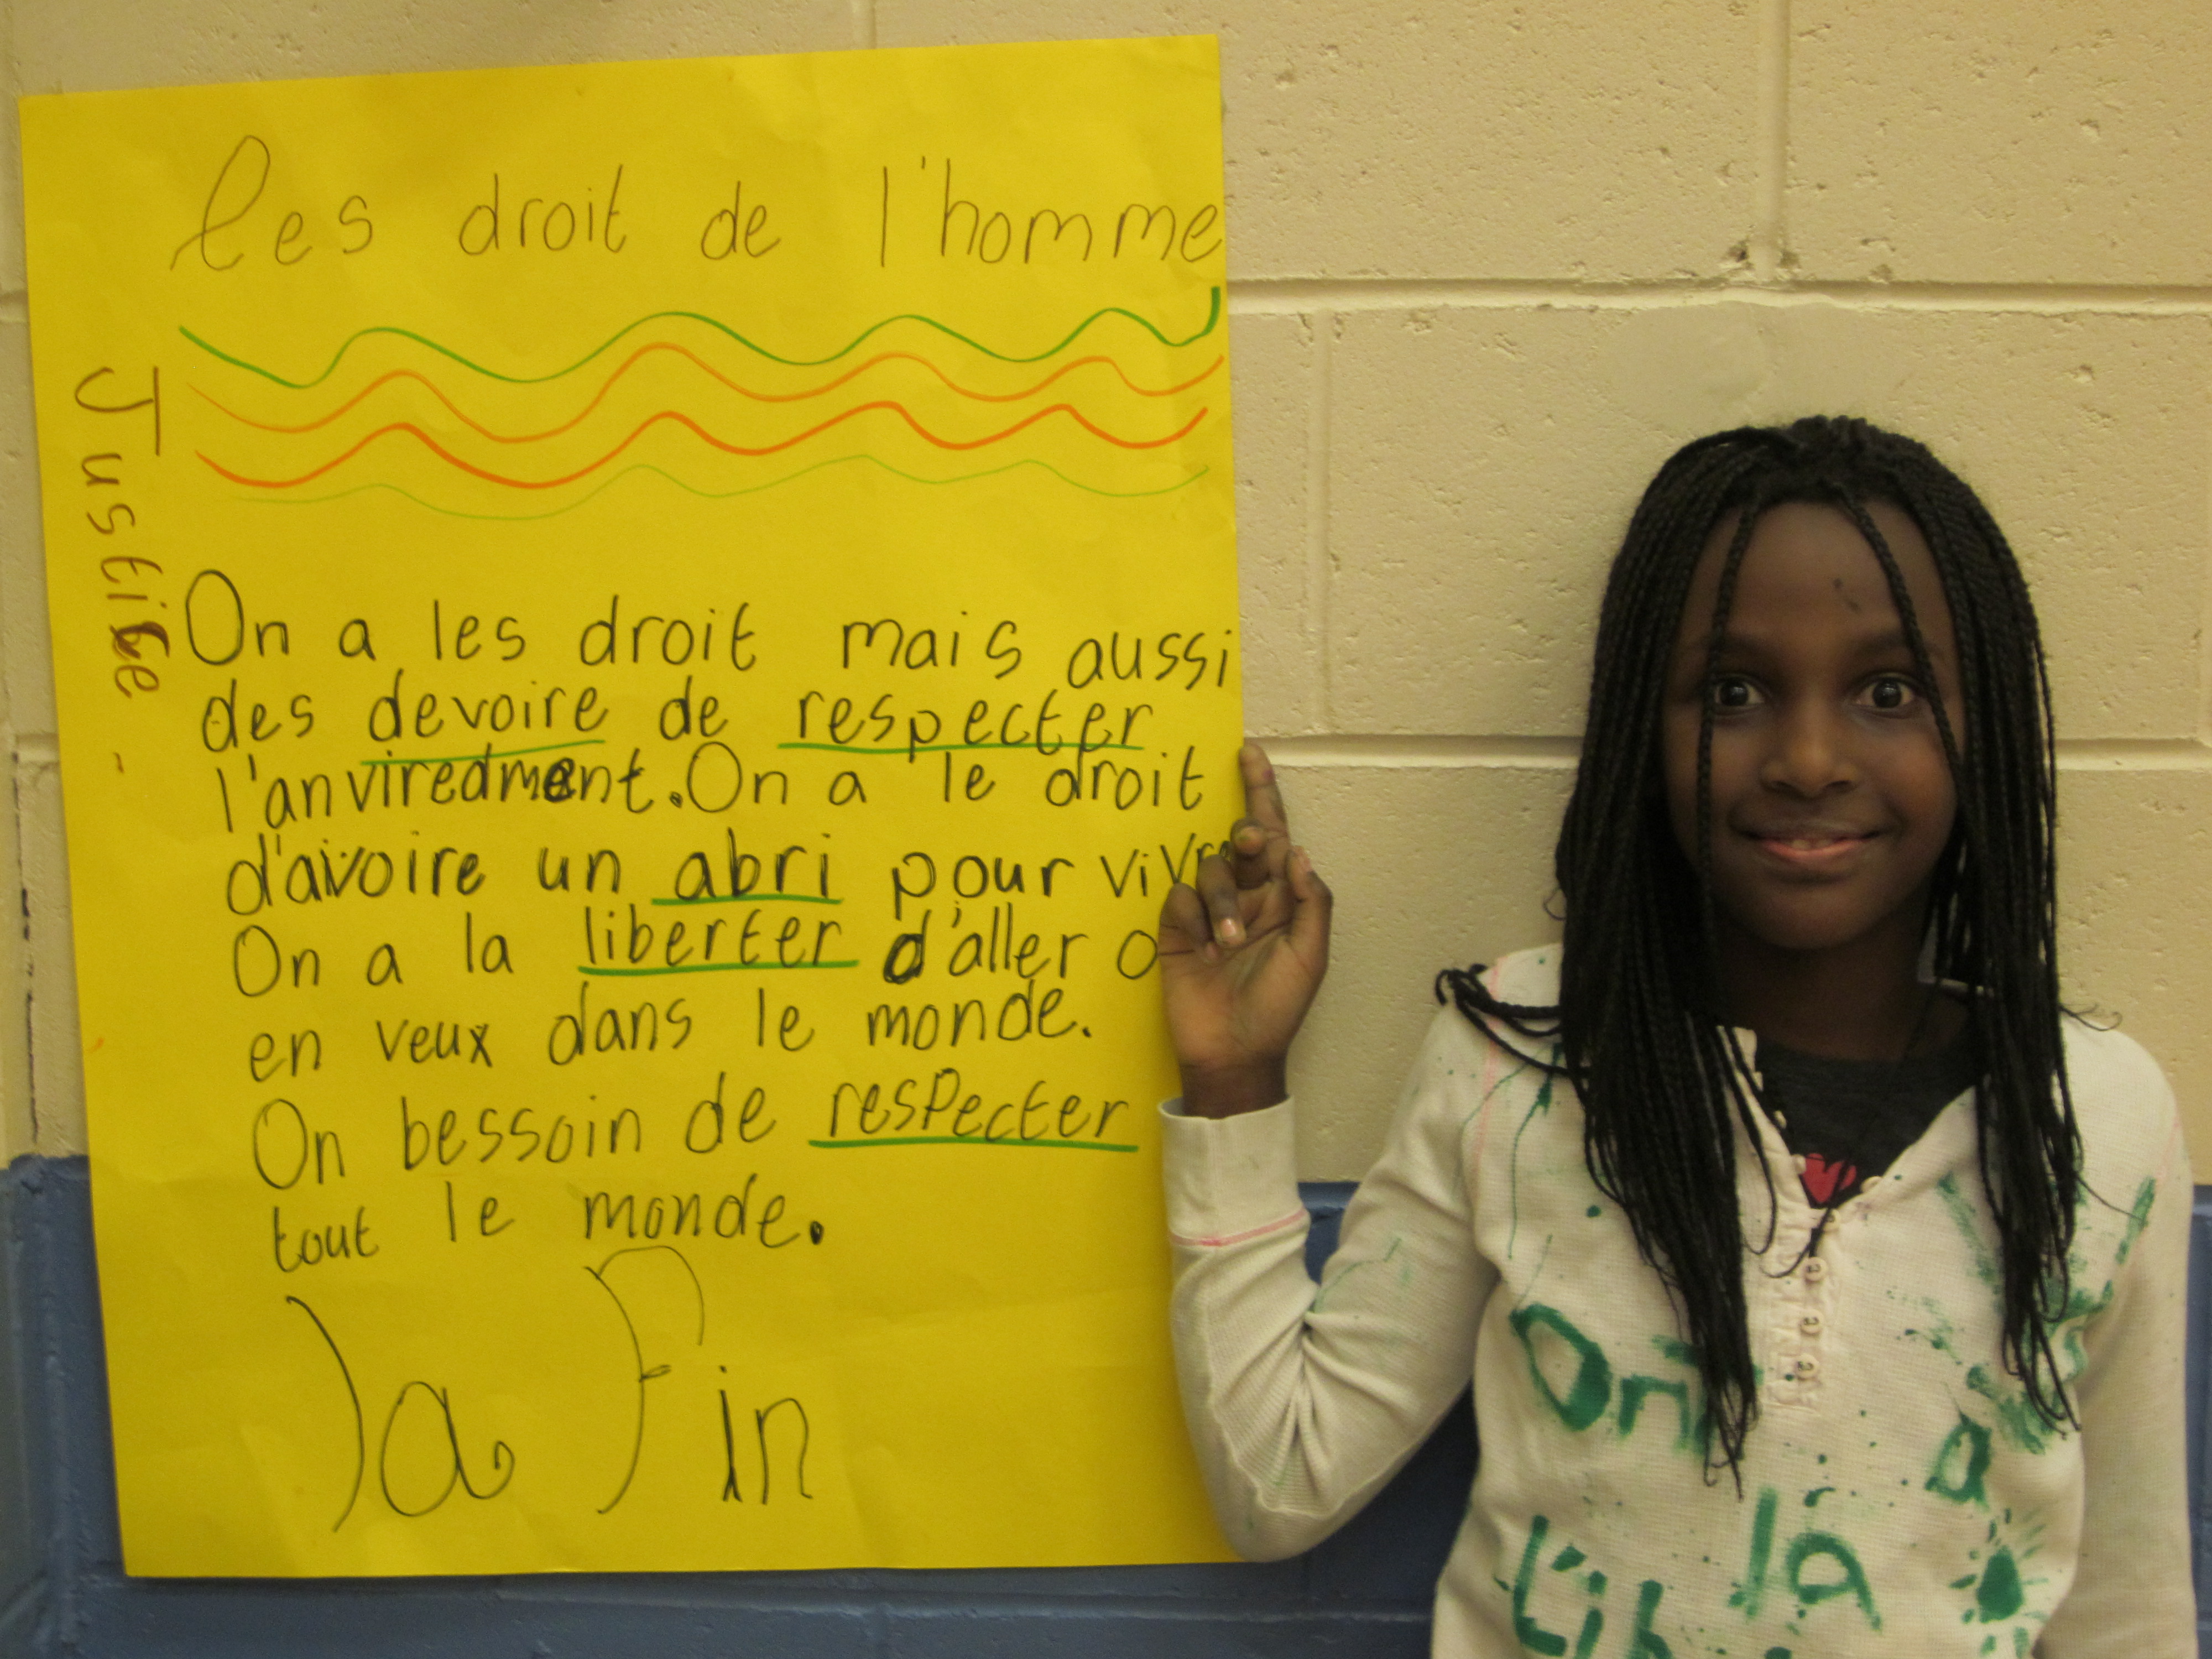 les droit de l'homme
Justice -
On a les droit mais aussi
des devoire de respecter
l'anviredment. On a le droit
d'avoire un abri pour
On a la liberter d'aller
en veux dans le monde.
On bessoin de resPecter
tout le monde.
la Fin
On a
la